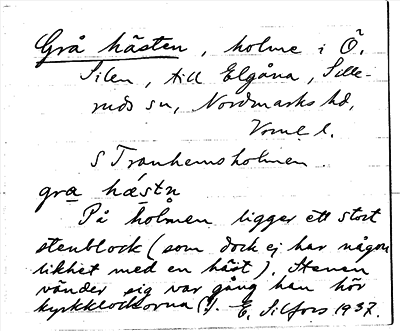 Grå hästen, holme i Ö.
Silen, till Elgåna, Sille-
ruds sn, Nordmarks hd,
Vrml l.
S Tranhemsholmen.
gra hæstn
På holmen ligger ett stort
stenblock (som dock ej har någon
likhet med en häst). Stenen
vänder sig var gång han hör
kyrkklockorna (!). E. Silfors 1937.